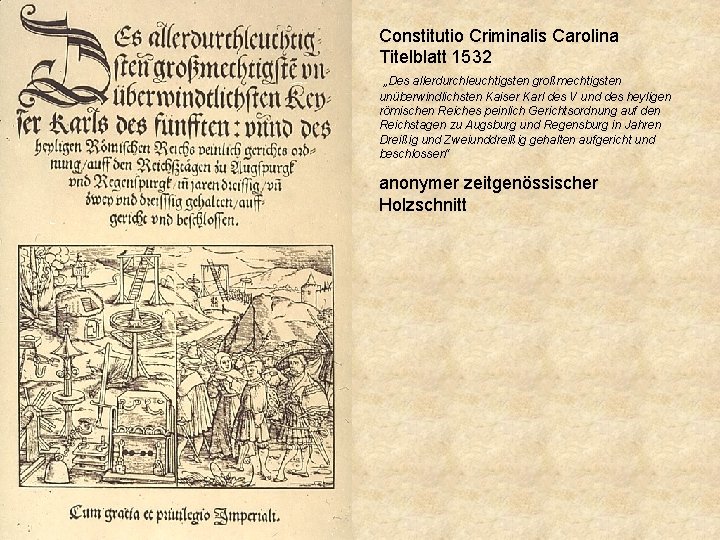 DEs allerdurchleuchtig-
sten großmechtigstē vn-
überwindtlichsten Key-
ser Karls des fünfften: vnnd des
heyligen Römischen Reichs peinlich gerichts ord-
nung / auff den Reichßtägen zu Augspurgk
vnd Regenspurgk / in jaren dreissig / vñ
zwey vnd dreissig gehalten / auff-
gericht vnd beschlossen.
Cum gratia et priuilegio Imperiali.
Constitutio Criminalis Carolina
Titelblatt 1532
„Des allerdurchleuchtigsten großmechtigsten
unüberwindlichsten Kaiser Karl des V und des heyligen
römischen Reiches peinlich Gerichtsordnung auf den
Reichstagen zu Augsburg und Regensburg in Jahren
Dreißig und Zweiunddreißig gehalten aufgericht und
beschlossen“
anonymer zeitgenössischer
Holzschnitt